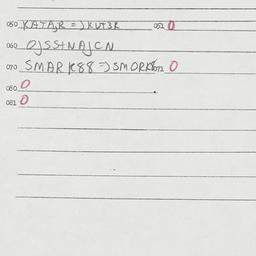 050 KATAJR => KUTSR 052 0
060 OJSSTNAJCN
070 SMARK88 => SMORK8 072 0
080 0
081 0